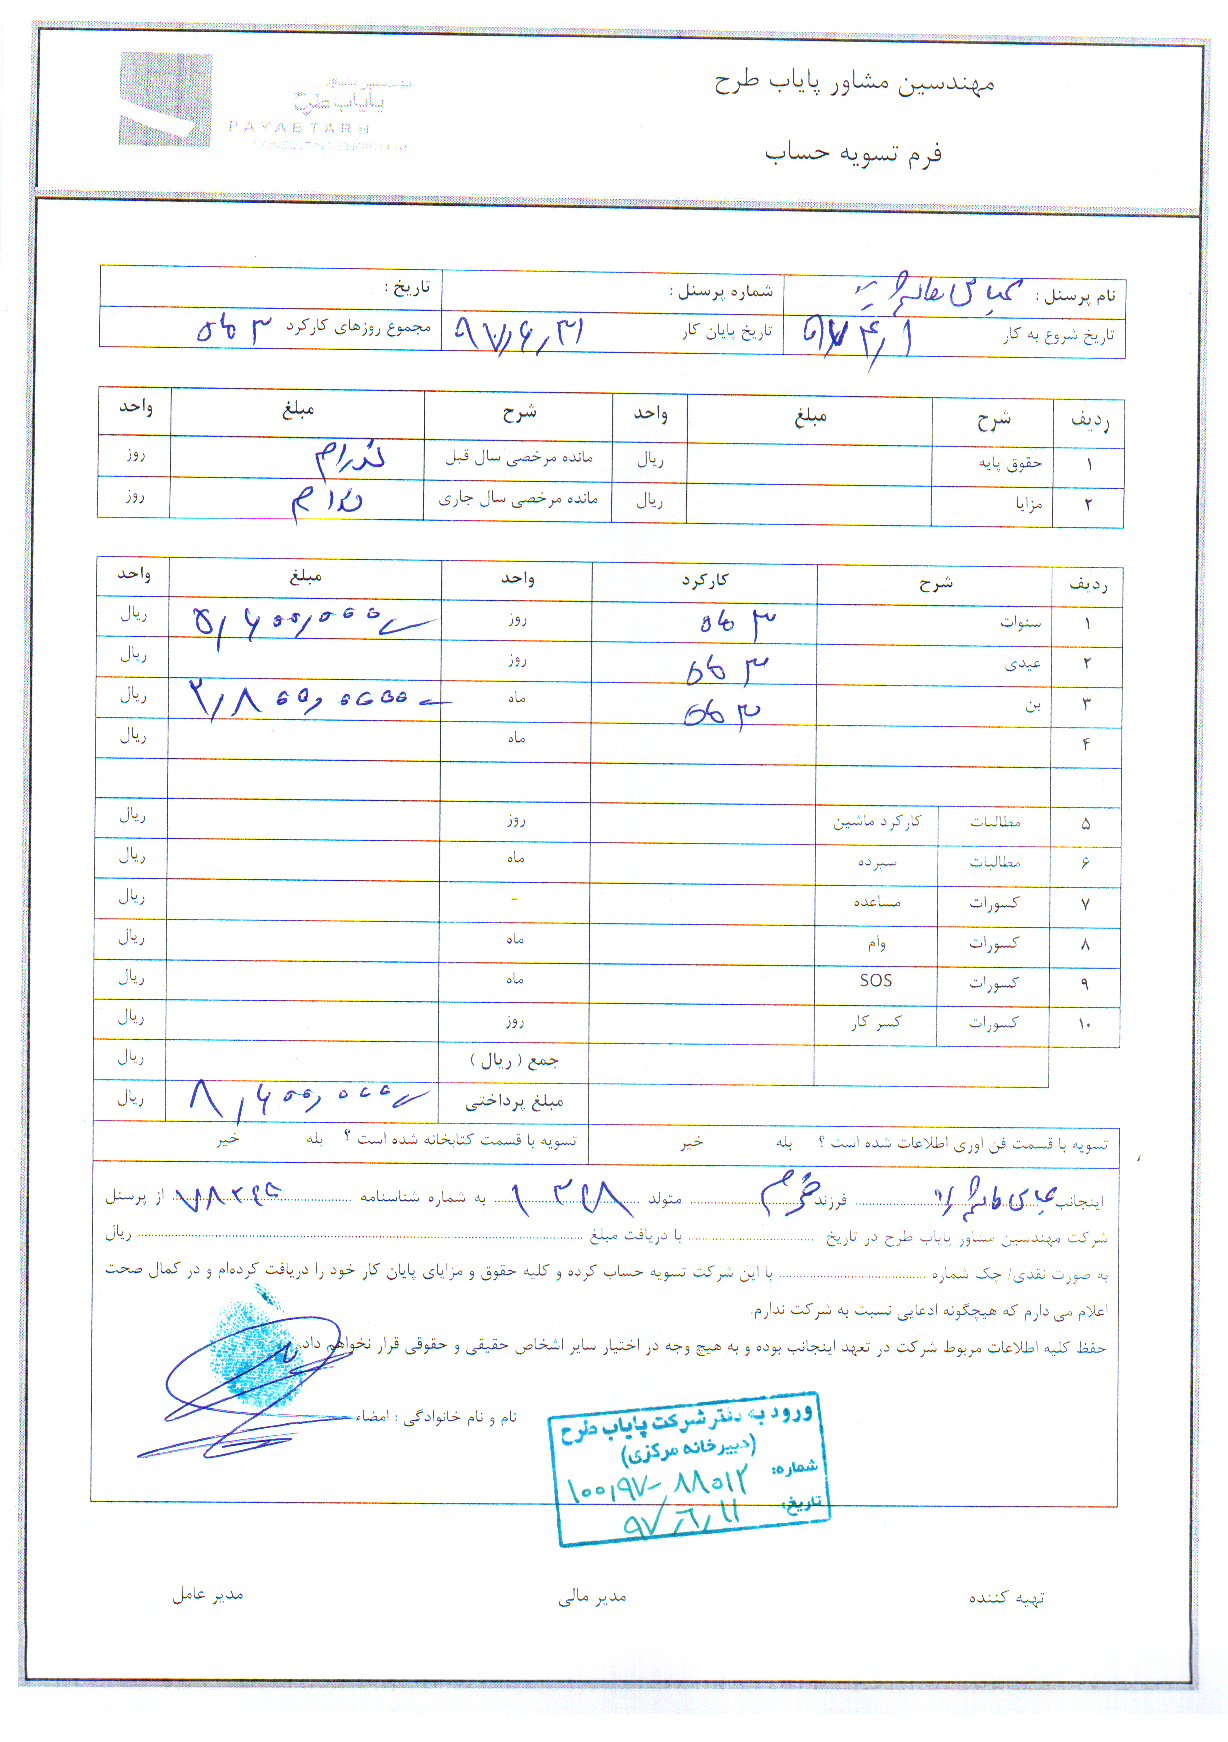 مهندسین مشاور پایاب طرح
پایاب طرح
PAYABTARH
فرم تسویه حساب
نام پرسنل : عباس شماره پرسنل : تاریخ :
تاریخ شروع به کار ۹۷/۴/۱ تاریخ پایان کار ۹۷/۶/۳۱ مجموع روزهای کارکرد ۳ ماه
ردیف شرح مبلغ واحد شرح مبلغ واحد
۱ حقوق پایه ریال مانده مرخصی سال قبل ندارم روز
۲ مزایا ریال مانده مرخصی سال جاری ندارم روز
ردیف شرح کارکرد واحد مبلغ واحد
۱ سنوات ۳ ماه روز ۵,۶۰۰,۰۰۰ ریال
۲ عیدی ۳ ماه روز ریال
۳ بن ۳ ماه ماه ۲,۸۰۰,۰۰۰ ریال
۴ ماه ریال
۵ مطالبات کارکرد ماشین روز ریال
۶ مطالبات سپرده ماه ریال
۷ کسورات مساعده - ریال
۸ کسورات وام ماه ریال
۹ کسورات SOS ماه ریال
۱۰ کسورات کسر کار روز ریال
جمع ( ریال ) ریال
مبلغ پرداختی ۸,۴۰۰,۰۰۰ ریال
تسویه با قسمت فن اوری اطلاعات شده است ؟ بله خیر تسویه با قسمت کتابخانه شده است ؟ بله خیر
اینجانب عباس فرزند متولد ۱۳۴۸ به شماره شناسنامه از پرسنل
شرکت مهندسین مشاور پایاب طرح در تاریخ با دریافت مبلغ ریال
به صورت نقدی/ چک شماره با این شرکت تسویه حساب کرده و کلیه حقوق و مزایای پایان کار خود را دریافت کرده‌ام و در کمال صحت
اعلام می دارم که هیچگونه ادعایی نسبت به شرکت ندارم.
حفظ کلیه اطلاعات مربوط شرکت در تعهد اینجانب بوده و به هیچ وجه در اختیار سایر اشخاص حقیقی و حقوقی قرار نخواهم داد.
نام و نام خانوادگی : امضاء
ورود به دفتر شرکت پایاب طرح
(دبیرخانه مرکزی)
شماره: ۱۰۰,۹۷-۸۸۰۱۲
تاریخ: ۹۷/۶/۱۱
تهیه کننده مدیر مالی مدیر عامل